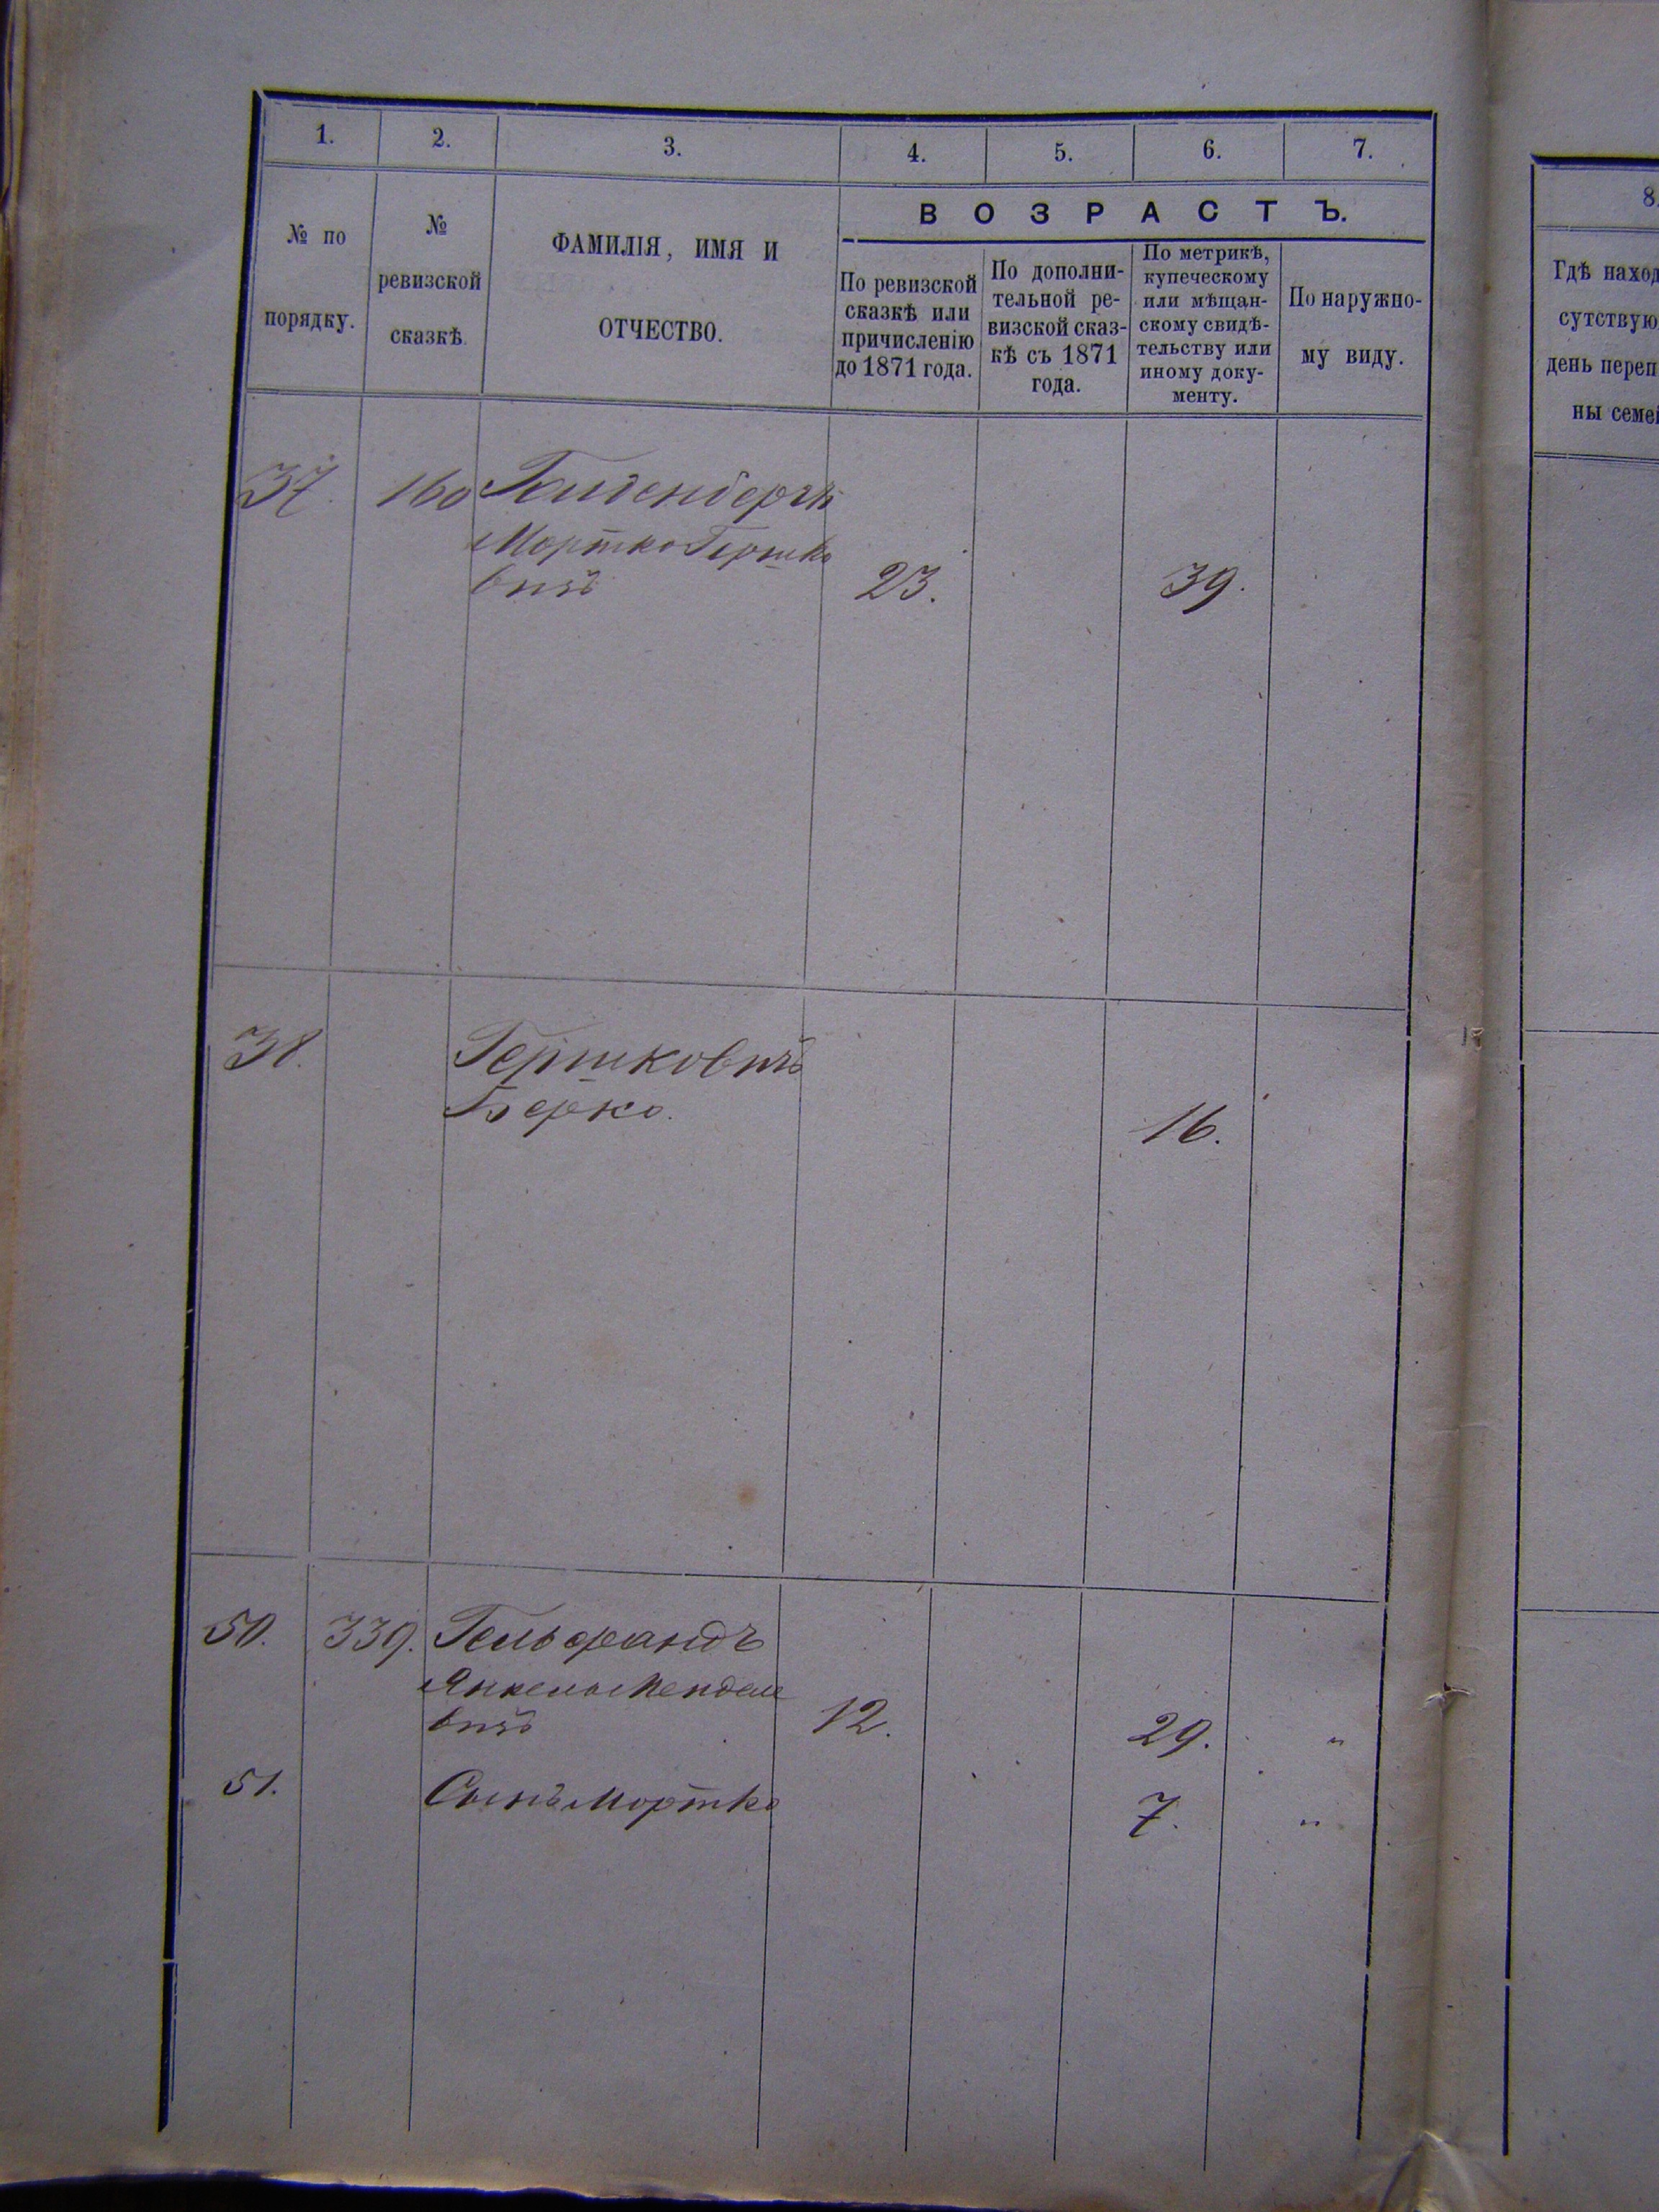 1. 2. 3. 4. 5. 6. 7.
№ по порядку.
№ ревизской сказкѣ.
ФАМИЛІЯ, ИМЯ И ОТЧЕСТВО.
ВОЗРАСТЪ.
По ревизской сказкѣ или причисленію до 1871 года.
По дополни-
тельной ре-
визской сказ-
кѣ съ 1871
года.
По метрикѣ,
купеческому
или мѣщан-
скому свидѣ-
тельству или
иному доку-
менту.
По наружно-
му виду.
8.
Гдѣ наход
сутствую
день переп
ны семей
37. 160
Мортко Гершко
вичъ 23. 39.
38. Гершковичъ
Берко. 16.
50. 339. Гельфандъ
Янкель Мендел
вичъ 12. 29. "
51. Сынъ Мортко 7. "